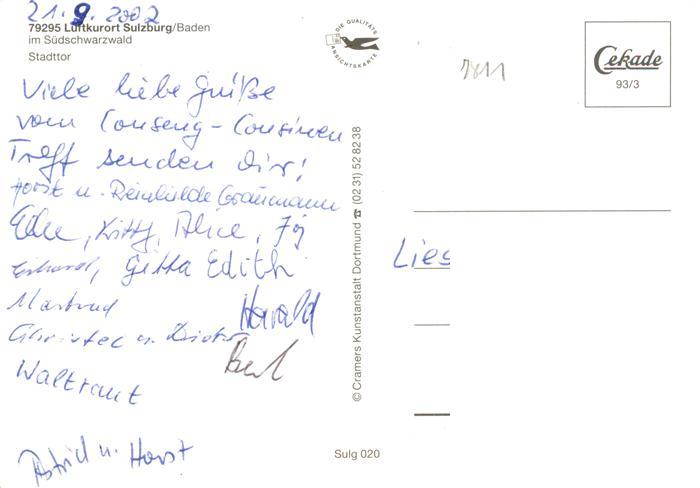 21.9.2002
79295 Luftkurort Sulzburg/Baden
im Südschwarzwald
Stadttor
DIE QUALITÄTS
ANSICHTSKARTE
Cekade
93/3
Viele liebe Grüße
vom Conseng-Consinen
Treff senden dir!
Horst u. Reinhilde Graumann
Kitty, Alice,
Erhard, Gitta Edith
Martrud
Harald
Christel u. Dieter
Waltraut
Astrid u. Horst
Lies
© Cramers Kunstanstalt Dortmund ☎ (02 31) 52 82 38
Sulg 020